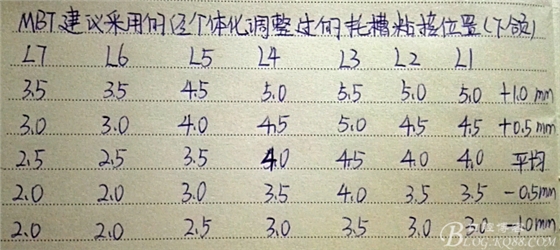 MBT建议采用的经个体化调整过的托槽粘接位置(下颌)
L7 L6 L5 L4 L3 L2 L1
3.5 3.5 4.5 5.0 5.5 5.0 5.0 +1.0 mm
3.0 3.0 4.0 4.5 5.0 4.5 4.5 +0.5mm
2.5 2.5 3.5 4.0 4.5 4.0 4.0 平均
2.0 2.0 3.0 3.5 4.0 3.5 3.5 -0.5mm
2.0 2.0 2.5 3.0 3.5 3.0 3.0 -1.0mm
BLOG.KQ88.COM